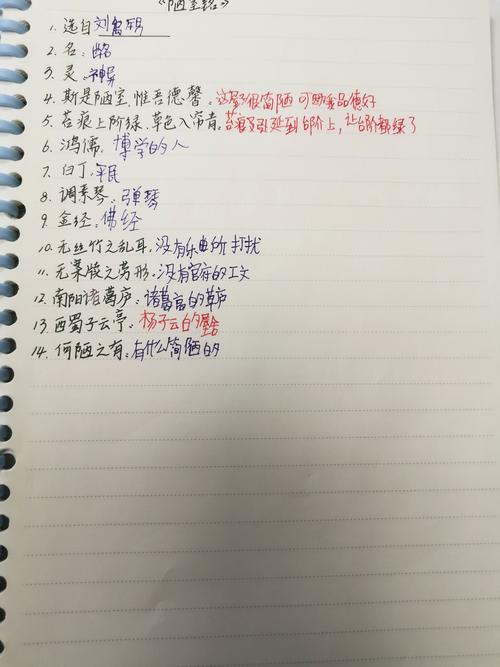 《陋室铭》
1. 选自刘禹锡
2. 名:出名
3. 灵:神灵
4. 斯是陋室,惟吾德馨。这屋子很简陋 可助我品德好
5. 苔痕上阶绿,草色入帘青。苔痕蔓延到台阶上,让台阶都绿了
6. 鸿儒:博学的人
7. 白丁:平民
8. 调素琴:弹琴
9. 金经:佛经
10. 无丝竹之乱耳:没有乐曲所打扰
11. 无案牍之劳形:没有官府的工文
12. 南阳诸葛庐:诸葛亮的草庐
13. 西蜀子云亭:杨子云的屋舍
14. 何陋之有:有什么简陋的